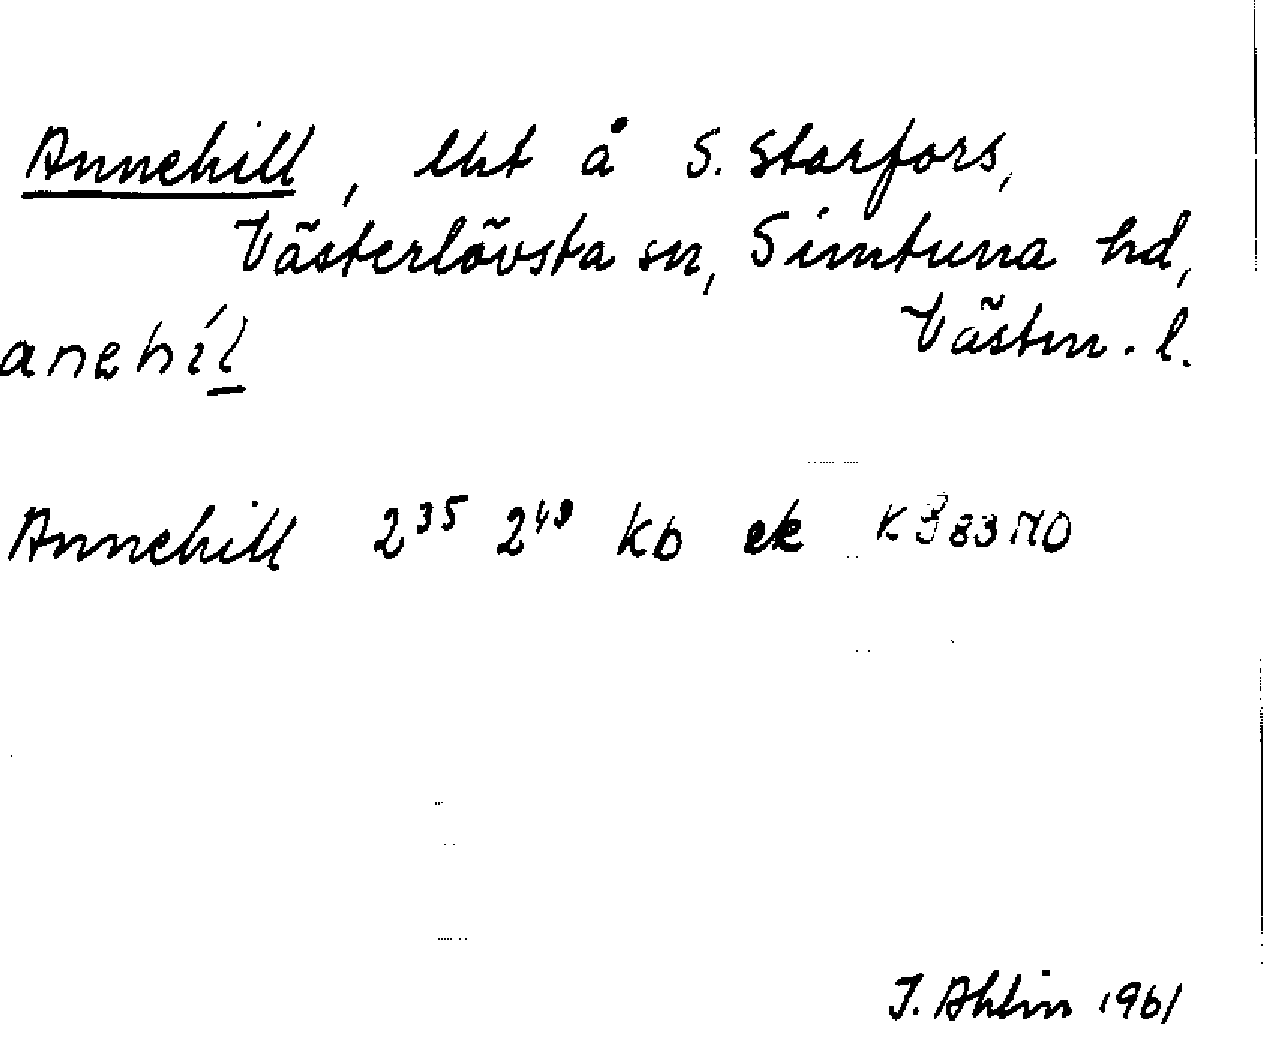 Annehill, lht å S. Starfors,
Västerlövsta sn, Simtuna hd,
Västm. l.
anehíl
Annehill 2³⁵ 2⁴⁹ kb ek K 83 MO
J. Ahlin 1961